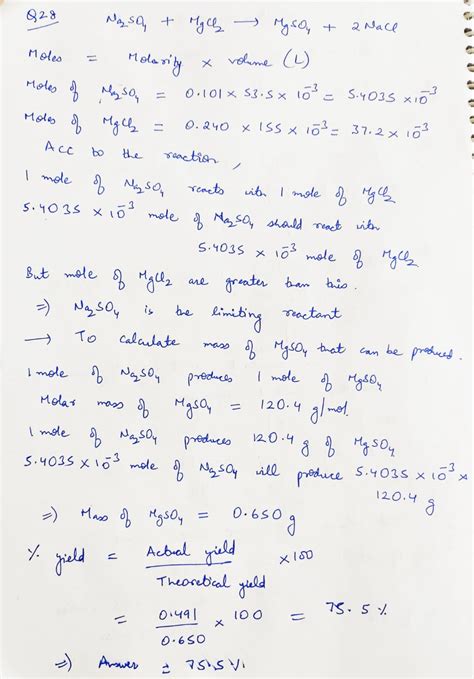 Q28 Na2SO4 + MgCl2 → MgSO4 + 2NaCl
Moles = Molarity × volume (L)
Moles of Na2SO4 = 0.101 × 53.5 × 10^-3 = 5.4035 × 10^-3
Moles of MgCl2 = 0.240 × 155 × 10^-3 = 37.2 × 10^-3
Acc to the reaction,
1 mole of Na2SO4 reacts with 1 mole of MgCl2
5.4035 × 10^-3 mole of Na2SO4 should react with
5.4035 × 10^-3 mole of MgCl2
But mole of MgCl2 are greater than this.
⇒ Na2SO4 is the limiting reactant
→ To calculate mass of MgSO4 that can be produced.
1 mole of Na2SO4 produces 1 mole of MgSO4
Molar mass of MgSO4 = 120.4 g/mol.
1 mole of Na2SO4 produces 120.4 g of MgSO4
5.4035 × 10^-3 mole of Na2SO4 will produce 5.4035 × 10^-3 ×
120.4 g
⇒ Mass of MgSO4 = 0.650 g
% yield = Actual yield / Theoretical yield × 100
= 0.491 / 0.650 × 100 = 75.5 %
⇒ Answer = 75.5 %